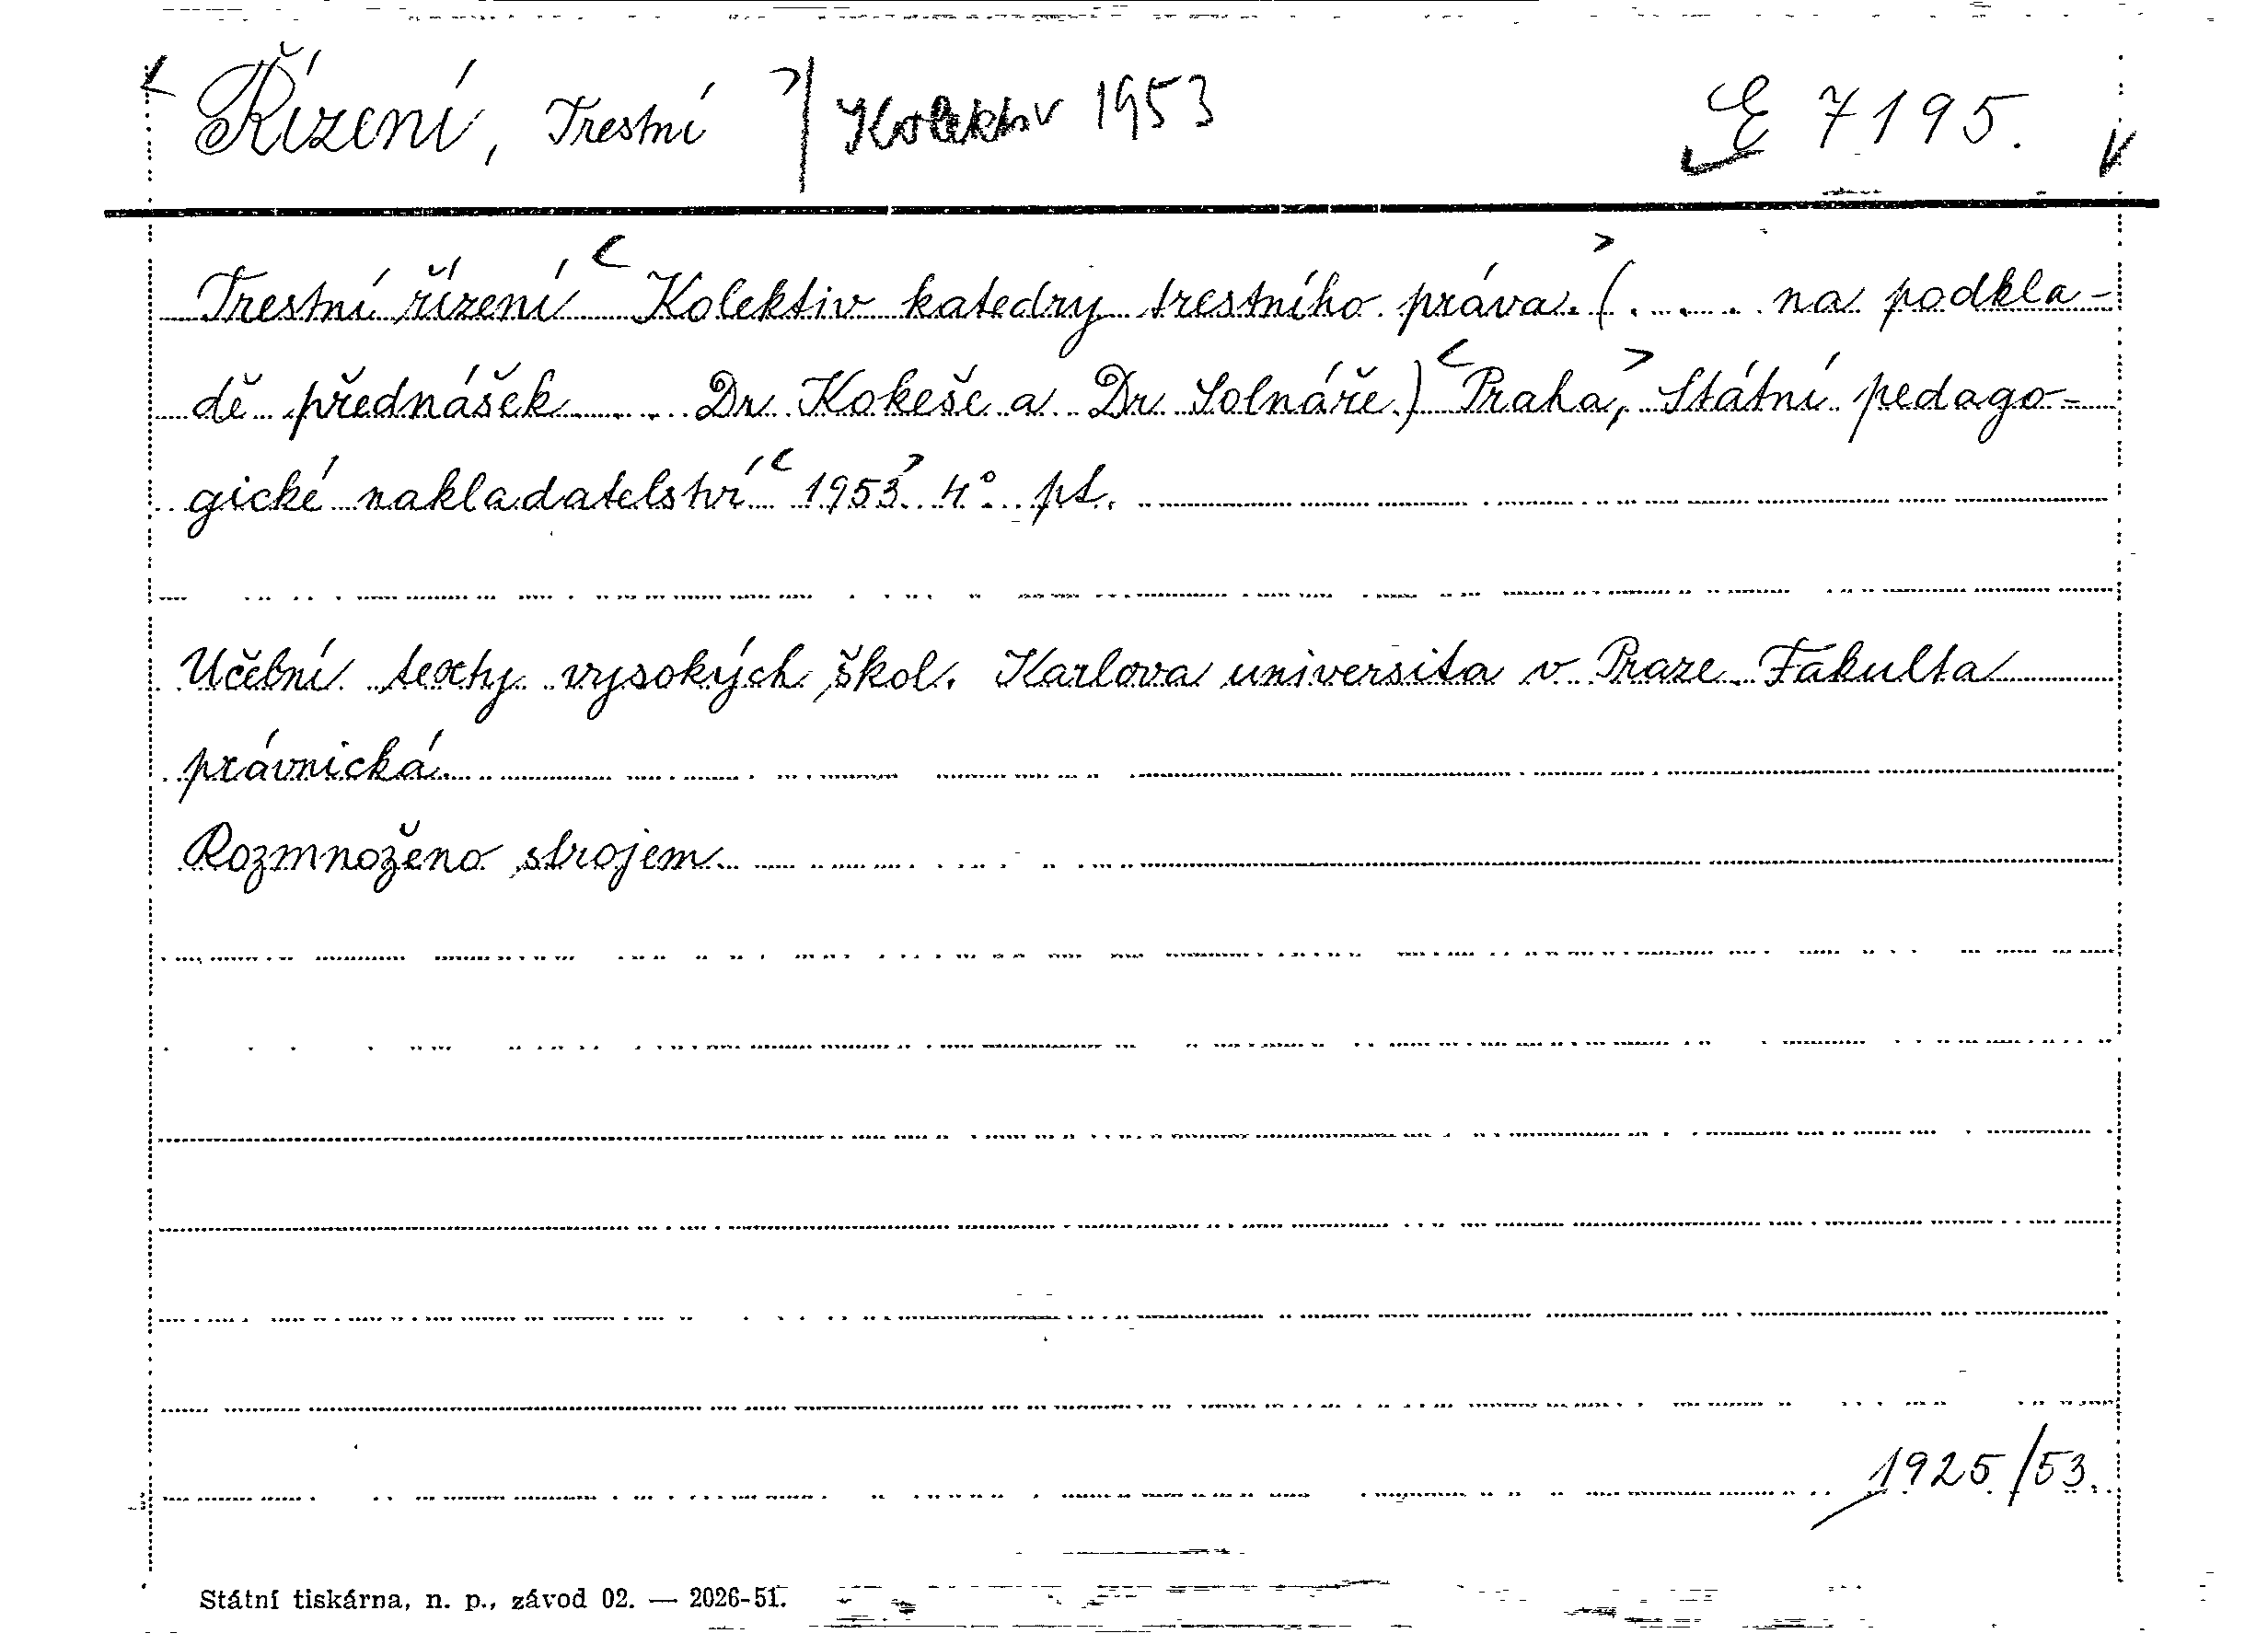 Řízení, Trestní / Kolektiv 1953 E 7195.
Trestní řízení < Kolektiv katedry trestního práva. > (..... na podkla-
dě přednášek.... Dr Kokeše a Dr Solnáře.) < Praha, > Státní pedago-
gické nakladatelství < 1953 > 4° pt.
Učební texty vysokých škol. Karlova universita v Praze. Fakulta
právnická.
Rozmnoženo strojem.
1925/53.
Státní tiskárna, n. p., závod 02. — 2026-51.